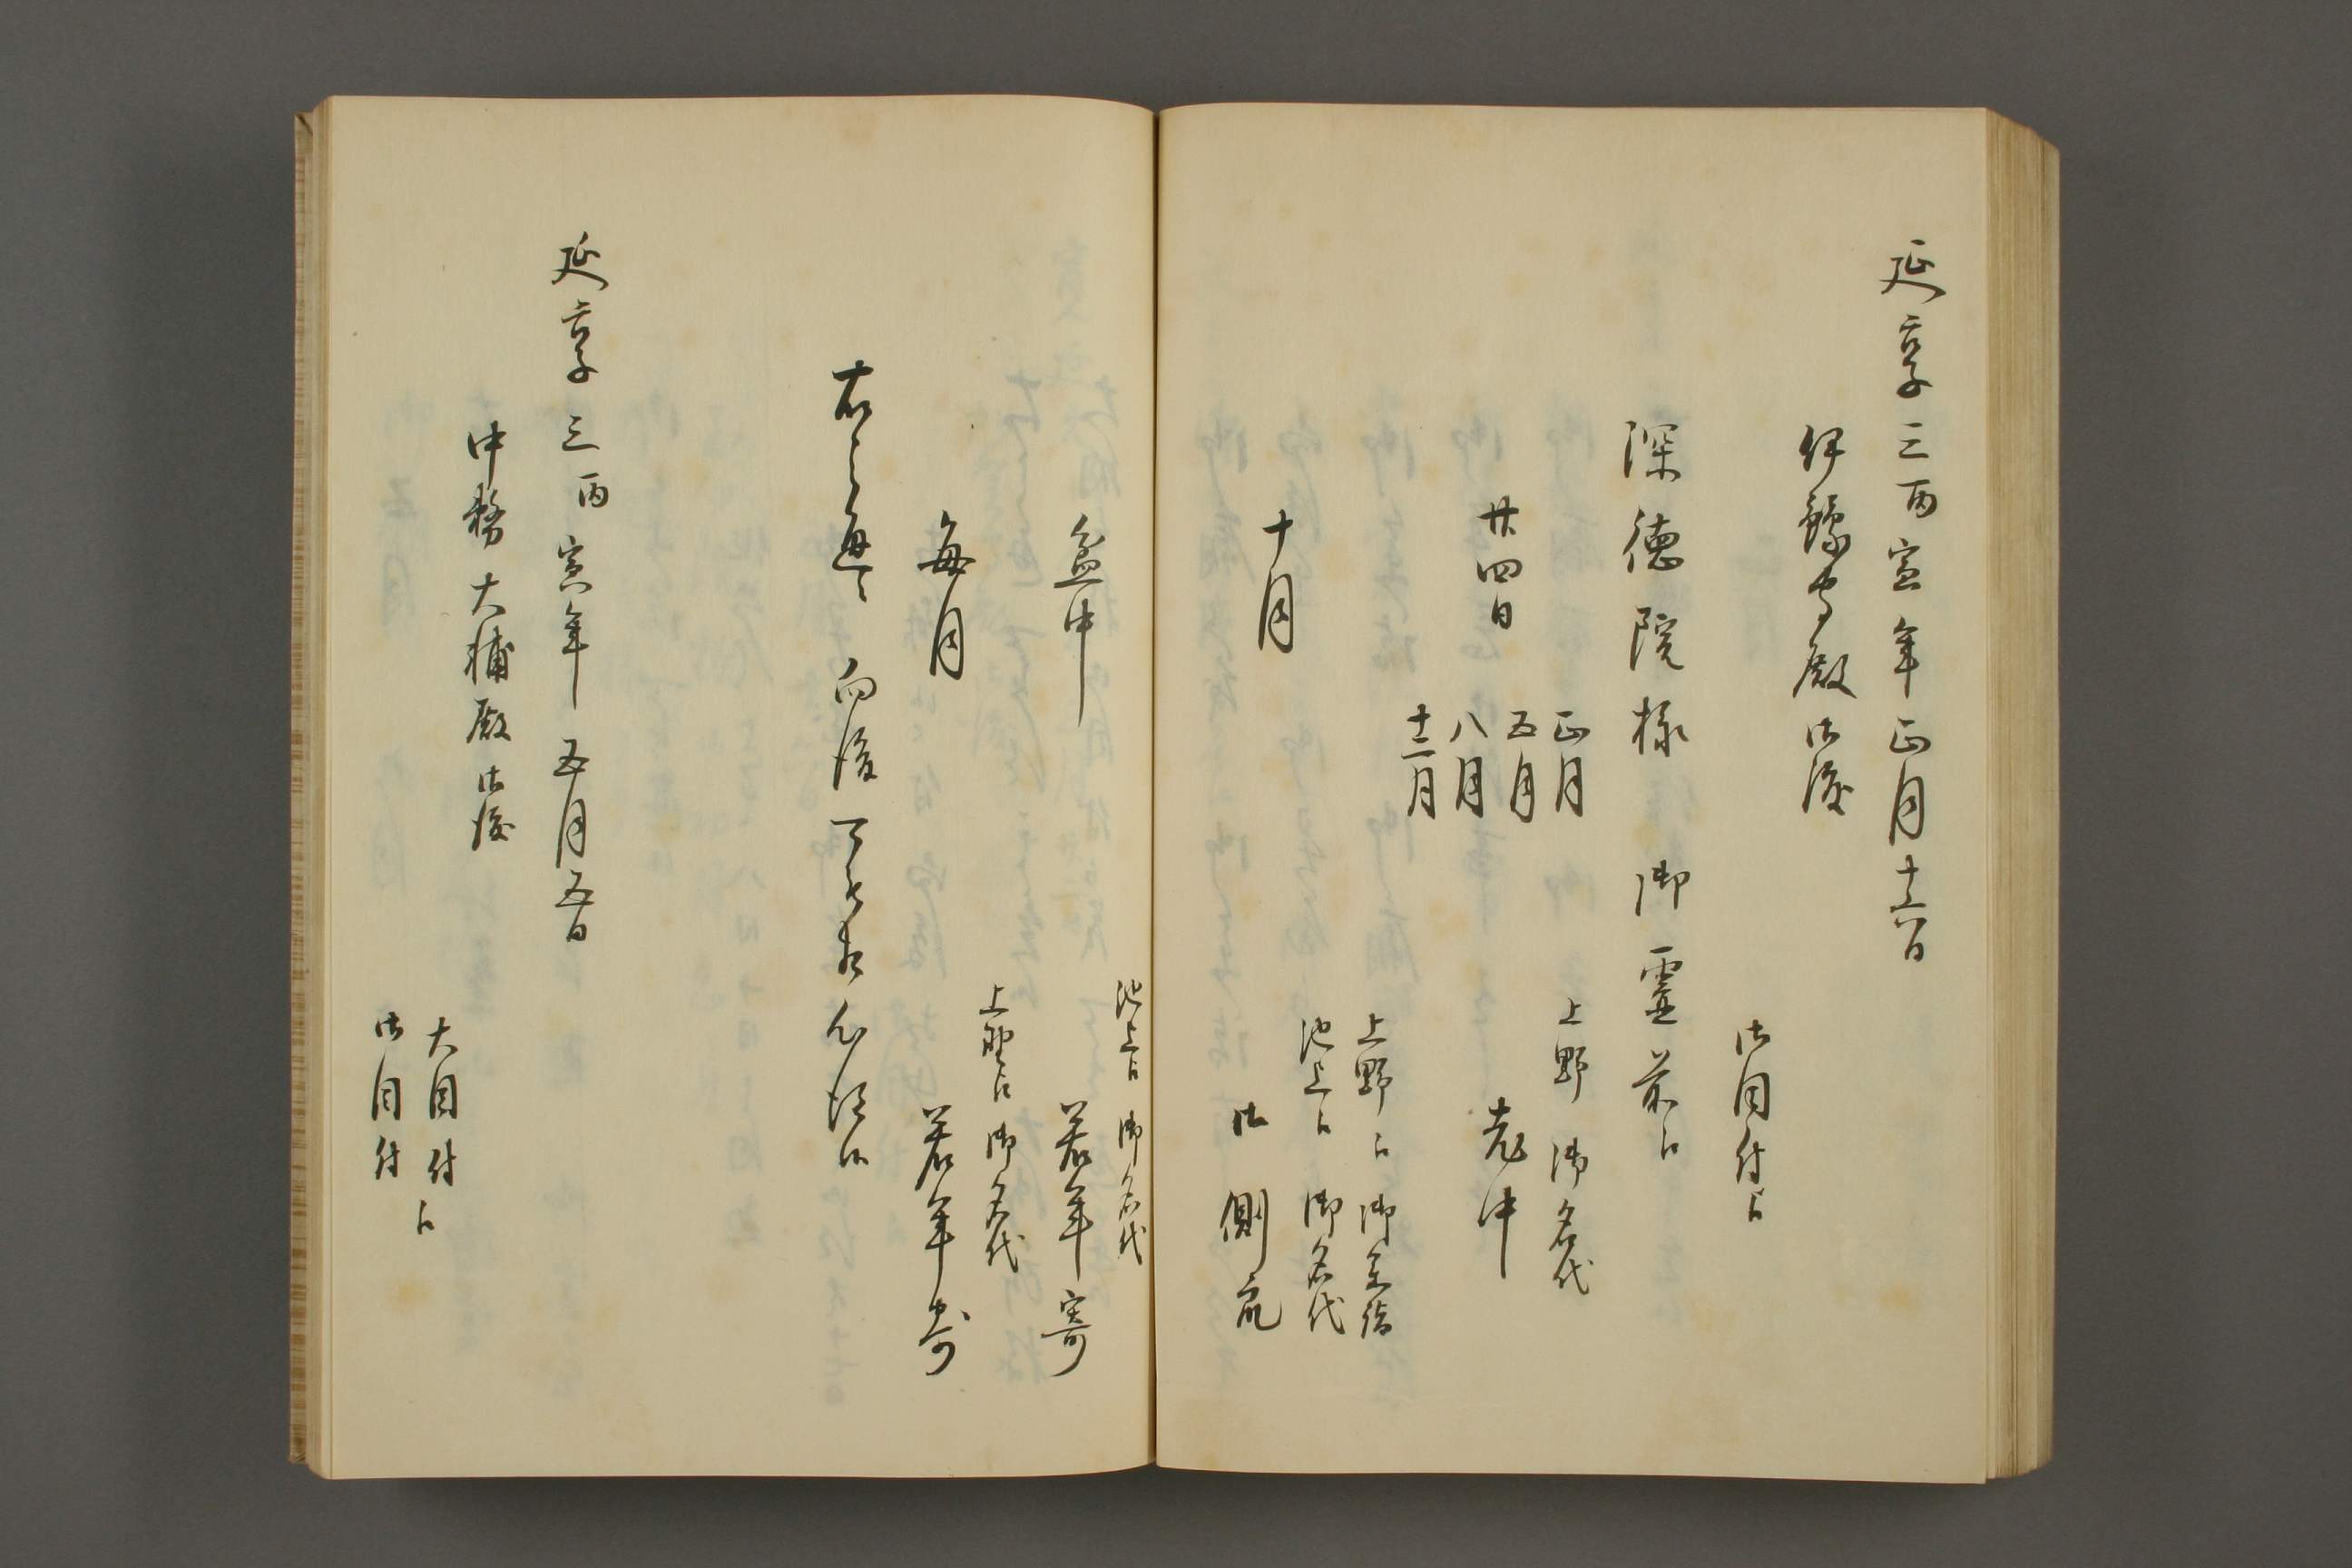 延享三丙寅年正月十六日
伊豫守殿御渡
御目付江
深徳院様 御霊前江
正月
五月
廿四日
八月
十二月
上野 御名代
老中
上野江 御参詣
池上江 御名代
十月
御側衆
池上江 御名代
盆中
若年寄
上野江 御名代
毎月
若年寄
右之通 向後可被相心得候
延享三丙寅年 五月五日
中務大輔殿御渡
大目付江
御目付